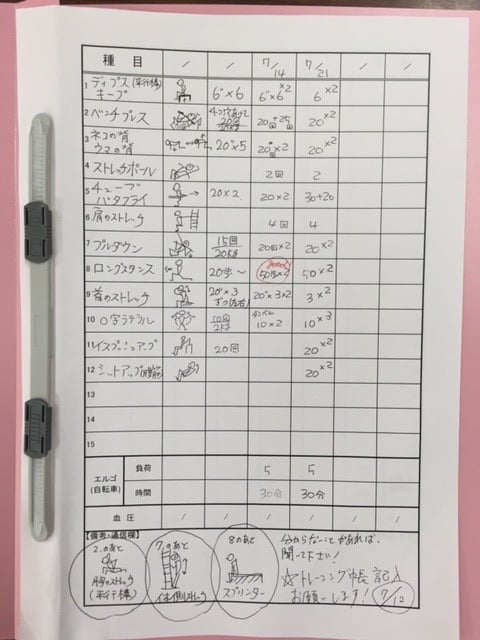 種目 / / 7/14 7/21 / /
1 ディップス(平行棒)
キープ 6"×6 6"×6×2 6×2
2 ベンチプレス 20回 20kg 20回+25回 20×2
3 ネコの背
ウマの背 20"×5 20"×2 20×2
4 ストレッチポール 2回 2
5 チューブ
バタフライ 20×2 20×2 30+20
6 肩のストレッチ 4回 4
7 プルダウン 15回 20kg 20回×2 20×2
8 ロングスタンス 20歩〜 50歩×2 50×2
9 首のストレッチ 20"×3
ずつ(左右) 20"×3×2 3×2
10 O字ラテラル 10回 2kg 10×2 10×3
11 20回 20×2
12 シットアップ(腹筋) 20×2
13
14
15
エルゴ
(自転車) 負荷 5 5
時間 30分 30分
血圧 / / / / / /
【備考・通信欄】
2.のあと
胸のストレッチ
(平行棒)
7.のあと
体側ストレッチ
8のあと
スプリンター
分からないことがあれば、
聞いて下さい!
☆トレーニング帳記入
お願いします! 7/12